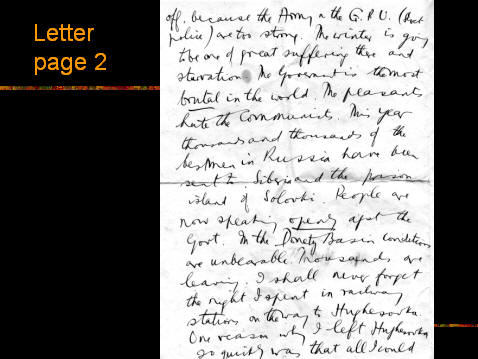 Letter
page 2
off, because the Army & the G.P.U. (Secret
police) are too strong. The winter is going
to be one of great suffering there and
starvation. The Government is the most
brutal in the world. The peasants
hate the Communists. This year
thousands and thousands of the
best men in Russia have been
sent to Siberia and the prison
island of Solovki. People are
now speaking openly agst the
Govt. In the Donetz Basin conditions
are unbearable. Thousands are
leaving. I shall never forget
the night I spent in railway
stations on the way to Hughesovka.
One reason why I left Hughesovka
so quickly was that all I could